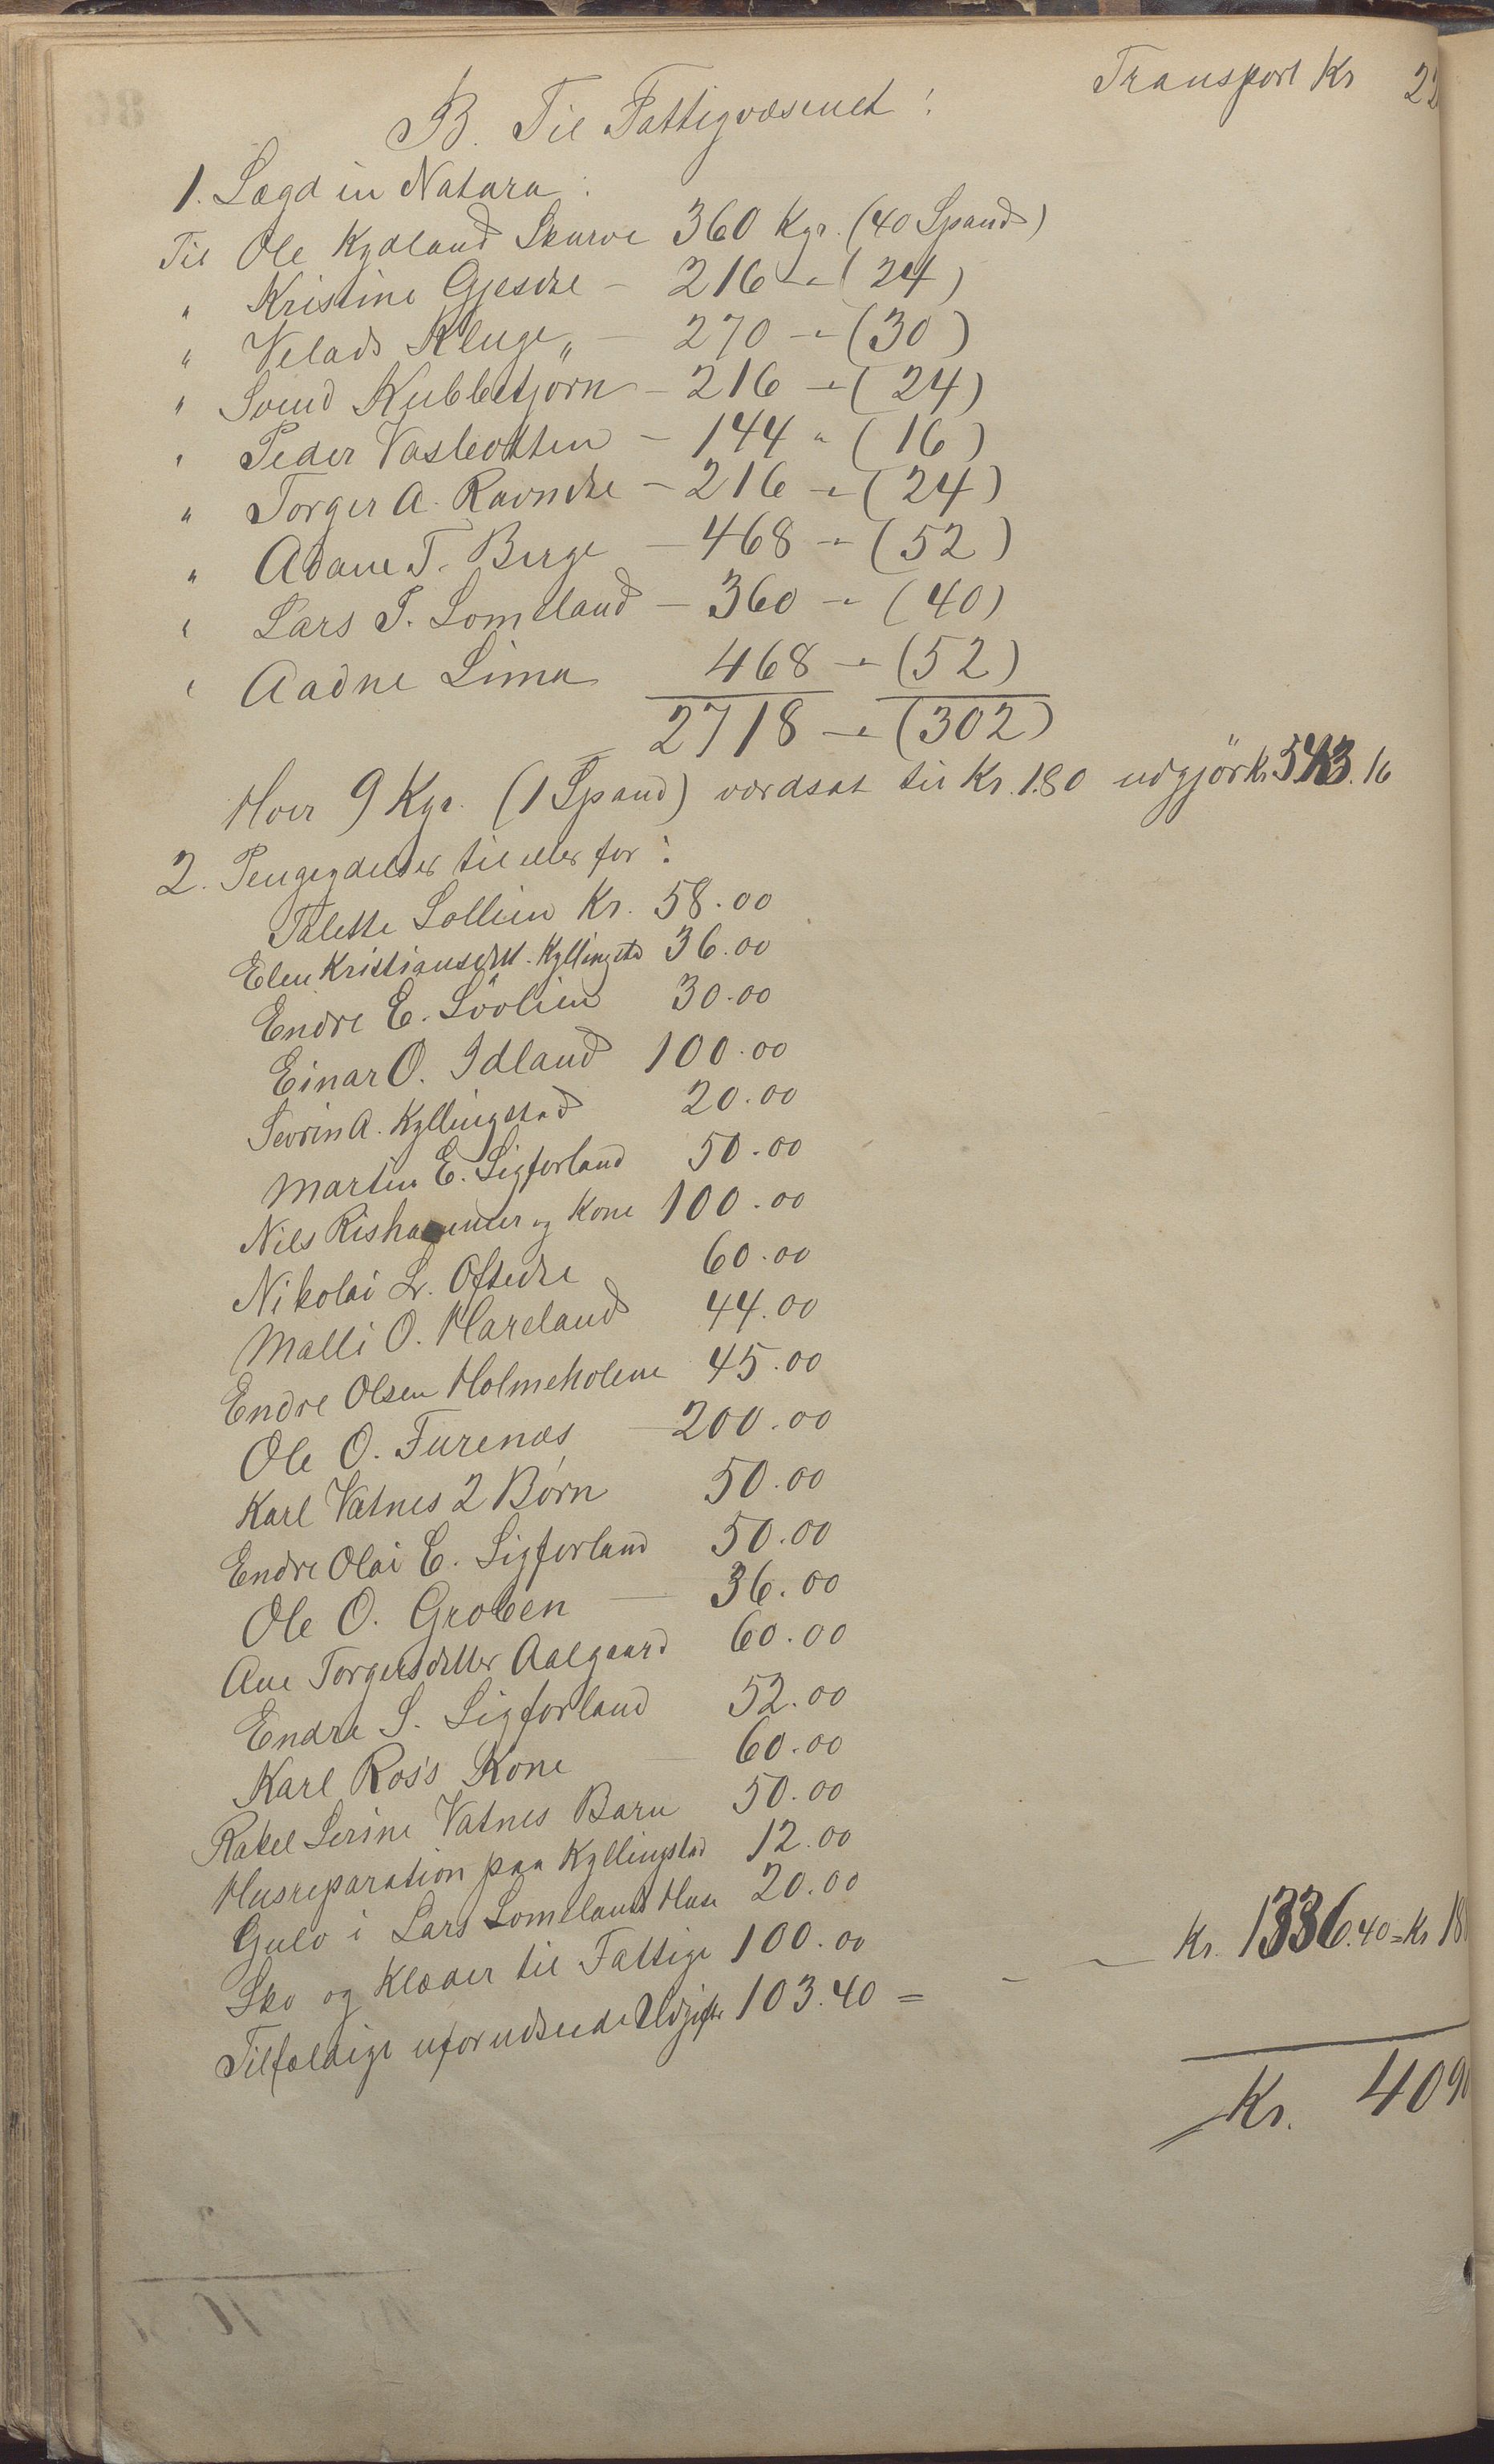 Transport Kr 22
B. Til Fattigvæsenet:
1. Lægd in Natura:
Til Ole Kydland Skurve 360 Kgr. (40 Spand)
" Kristine Gjesdal - 216 -"- (24)
" Velads Kluge " - 270 -"- (30)
" Svend Kubbetjørn - 216 -"- (24)
" Peder Vasbotten - 144 " (16)
" Torger A. Ravndal - 216 -"- (24)
" Adane T. Berge - 468 -"- (52)
" Lars T. Lomeland - 360 -"- (40)
" Aadne Lima 468 -"- (52)
2718 -"- (302)
Hver 9 Kgr. (1 Spand) værdsat til Kr. 1.80 udgjör Kr 543.16
2. Pengeydelser til eller for:
Talette Sollien Kr. 58.00
Elen Kristiansdtt. Kyllingstd 36.00
Endre E. Lövlien 30.00
Einar O. Idland 100.00
Sevrin A. Kyllingstad 20.00
Martin E. Ligforland 50.00
Nils Rishammer og Kone 100.00
Nikolai Lr. Oftedal 60.00
Malli O. Hareland 44.00
Endre Olsen Holmeholene 45.00
Ole O. Furenæs - 200.00
Karl Vatnes 2 Børn 50.00
Endre Olai E. Ligforland 50.00
Ole O. Groben - 36.00
Ane Torgersdatter Aalgaard 60.00
Endre S. Ligforland 52.00
Karl Ros's Kone - 60.00
Rakel Serine Vatnes Barn 50.00
Husreparation paa Kyllingstad 12.00
Gulv i Lars Lomelands Hus 20.00
Sko og Klæder til Fattige 100.00
Tilfældige uforudseede Udgifter 103.40 = - - Kr. 1336.40 = Kr 18
Kr. 409